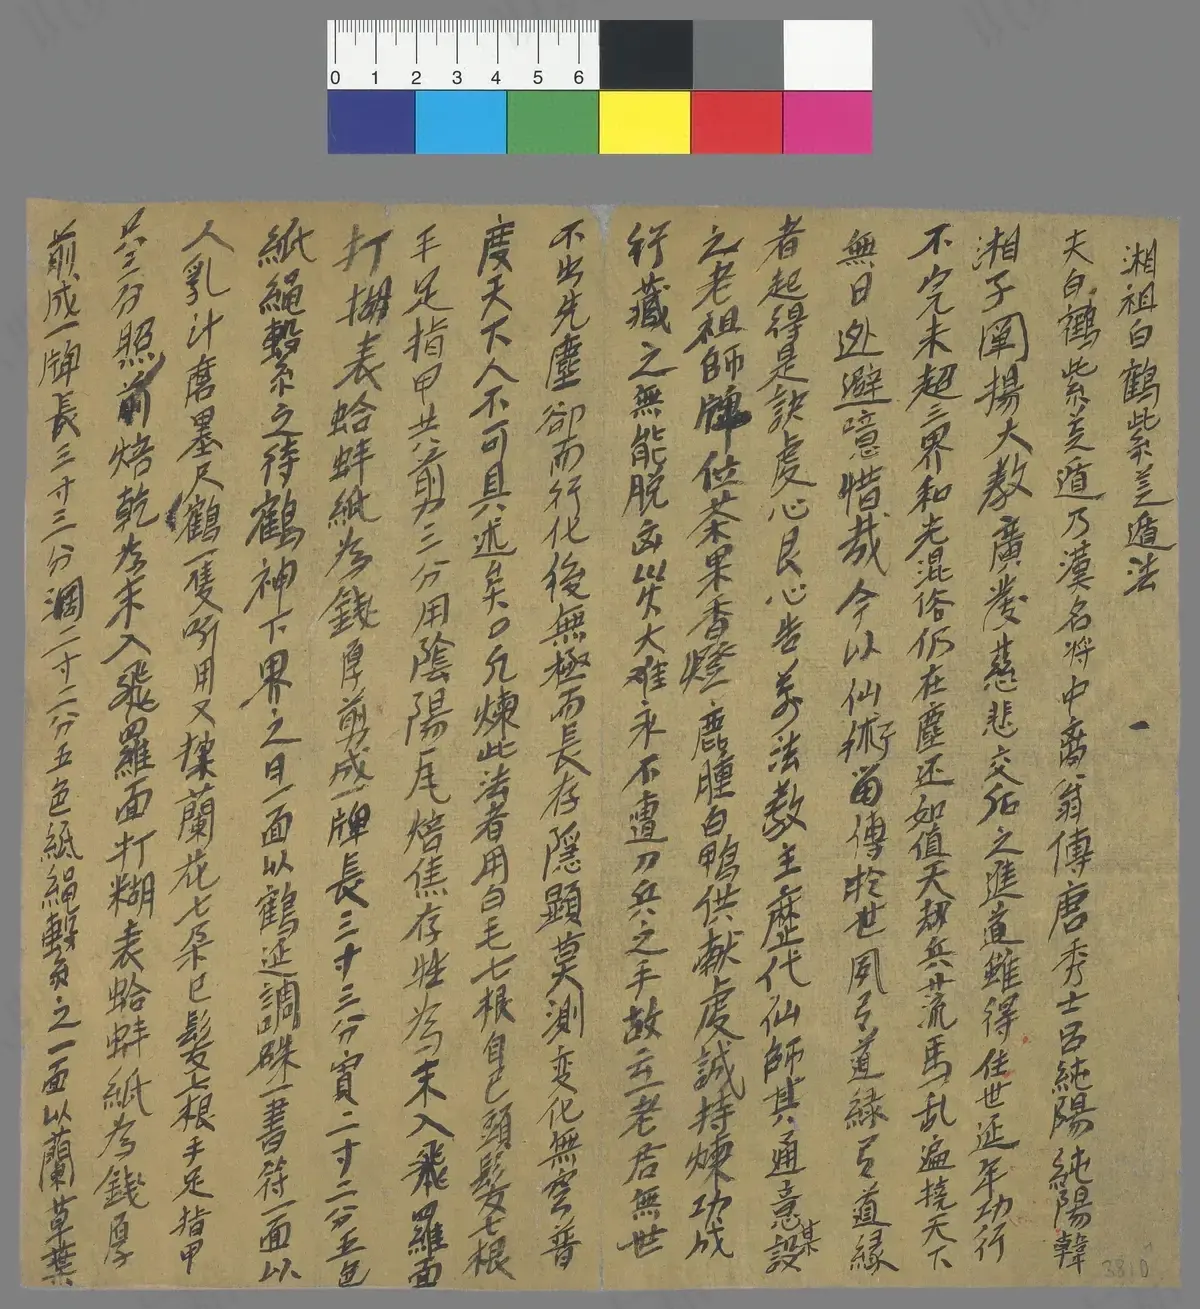 湘祖白鶴紫芝遁法
夫白鶴紫芝遁乃漢名将中离翁傳唐秀士吕純陽純陽韓
湘子闡揚大教廣發慈悲交留之進道雖得住世延年功行
不完未超三界和光混俗仍在塵还如值天劫兵荒馬乱遍挠天下
無日迯避噫惜哉今以仙術留傳於世夙有道緑有道緑
者起得是訣虔心良心告万法教主歷代仙師其通意設某
之老祖師牌位茶果香燈鹿腫白鴨供献虔誠持煉功成
行藏之無能脱凶災大难永不遭刀兵之手故云老居無世
不出先塵卻而行化後無極而長存隱顯莫測変化無窮普
度天下人不可具述矣〇凡煉此法者用白毛七根自己頭髮七根
手足指甲共剪三分用陰陽瓦焙焦存性為末入飛羅面
打糊表蛤蚌紙為錢厚剪成一牌長三寸三分寬二寸二分五色
紙繩繫之待鶴神下界之日一面以鶴延調硃一書符一面以
人乳汁磨墨尺鶴一隻听用又採蘭花七朵己髮七根手足指甲
共三分照前焙乾為末入飛羅面打糊表蛤蚌紙為錢厚
剪成一牌長三寸三分濶二寸二分五色紙繩繫之一面以蘭草葉
3810
0 1 2 3 4 5 6